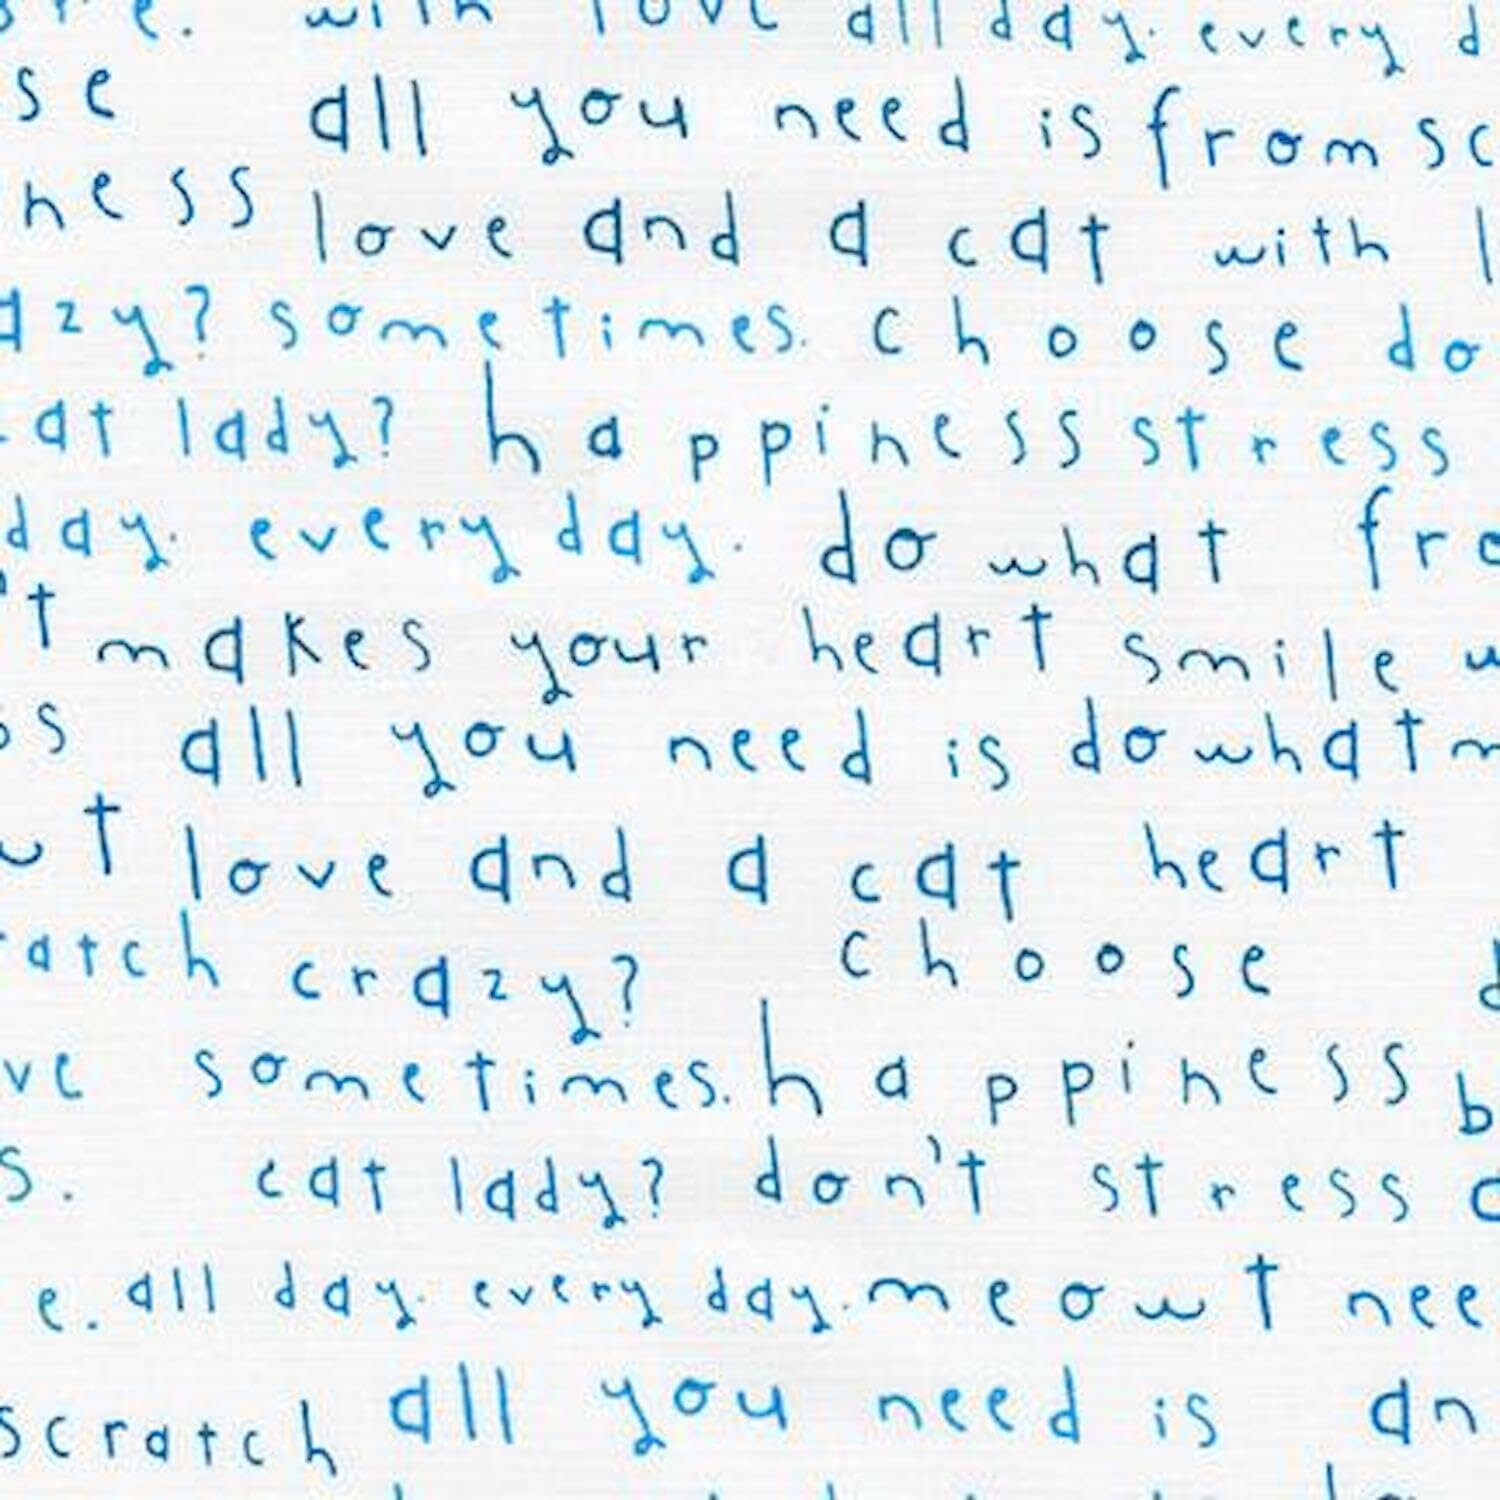 with love all day. every d
se all you need is from sc
ness love and a cat with l
azy? sometimes. choose do
at lady? happiness stress
day. every day. do what fro
't makes your heart smile w
ss all you need is do what m
ut love and a cat heart
ratch crazy? choose d
ve sometimes. happiness b
s. cat lady? don't stress
e. all day. every day. meowt nee
scratch all you need is an